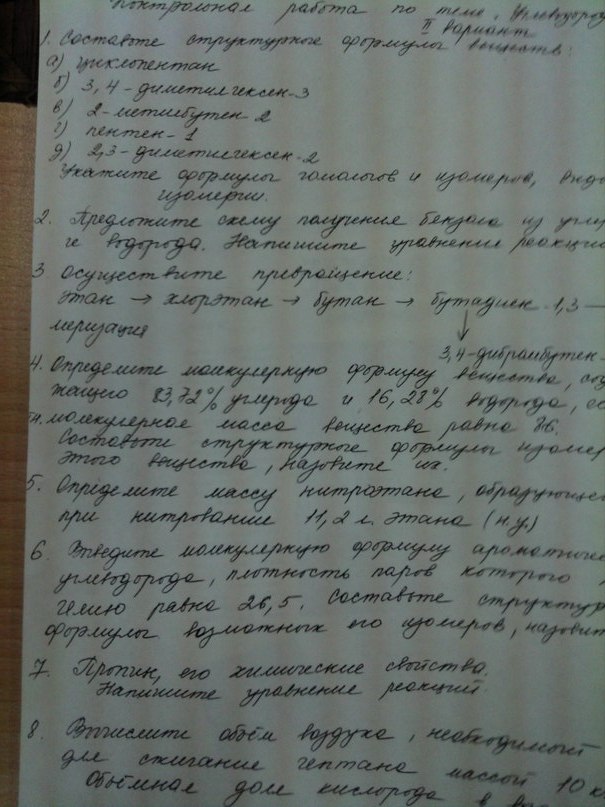 Контрольная работа по теме „Углеводород
II вариант
1. Составьте структурные формулы веществ:
а) циклопентан
б) 3,4-диметилгексен-3
в) 2-метилбутен-2
г) пентен-1
д) 2,3-диметилгексен-2
Укажите формулы гомологов и изомеров, виды
изомерии.
2. Предложите схему получения бензола из угле
и водорода. Напишите уравнения реакци
3 Осуществите превращение:
этан → хлорэтан → бутан → бутадиен-1,3 —
меризация ↓
3,4-дибромбутен-
4. Определите молекулярную формулу вещества, сод
жащего 83,72% углерода и 16,28% водорода, ес
молекулярная масса вещества равна 86.
Составьте структурные формулы изомер
этого вещества, назовите их.
5. Определите массу нитроэтана, образующе
при нитровании 11,2 л. этана (н.у.)
6. Выведите молекулярную формулу ароматичес
углеводорода, плотность паров которого
гелию равна 26,5. Составьте структур
формулы возможных его изомеров, назовит
7. Пропин, его химические свойства.
Напишите уравнение реакций.
8. Вычислите объём воздуха, необходимый
для сжигание гептана массой 10 к
Объёмная доля кислорода в